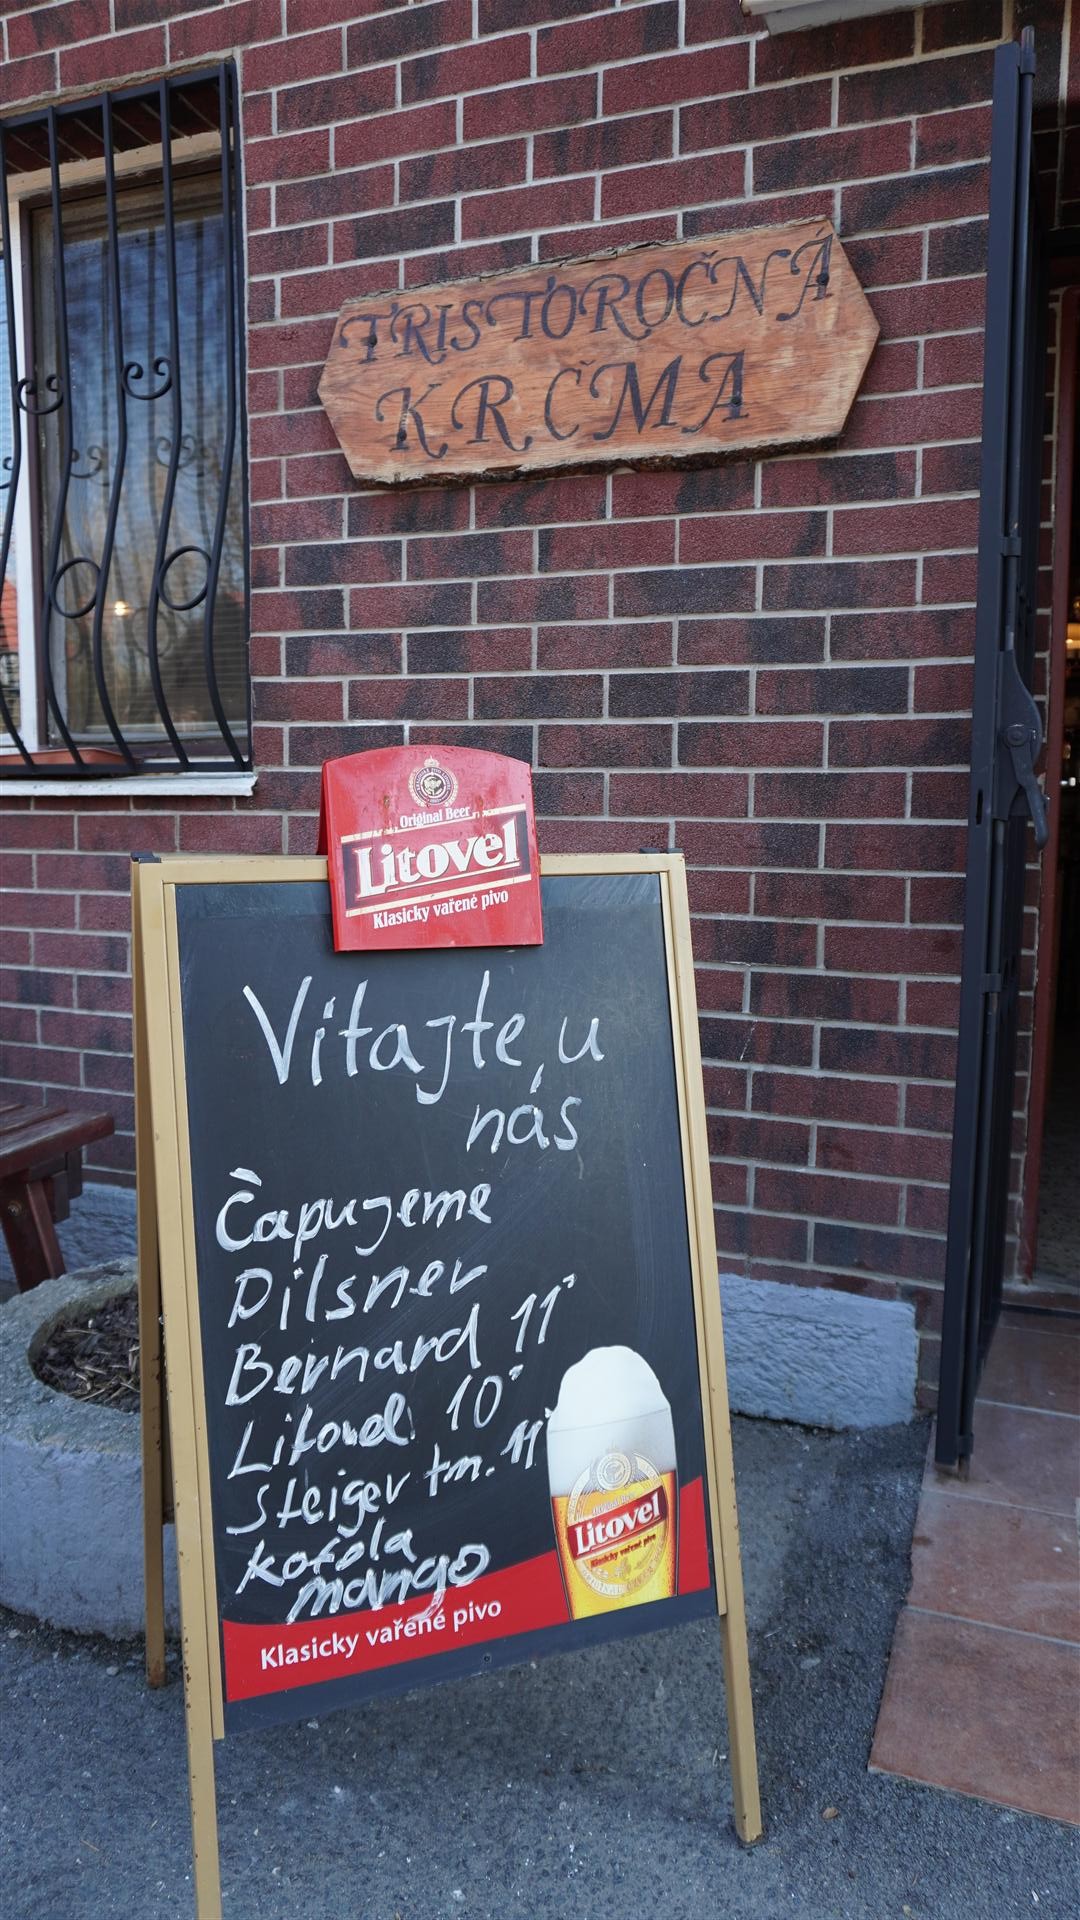 TRISTOROČNÁ
KRČMA
Original Beer
Litovel
Klasicky vařené pivo
Vitajte u
nás
Čapujeme
Pilsner
Bernard 11°
Litovel 10°
Steiger tm. 11°
kofola
mango
Litovel
Klasicky vařené pivo
Klasicky vařené pivo